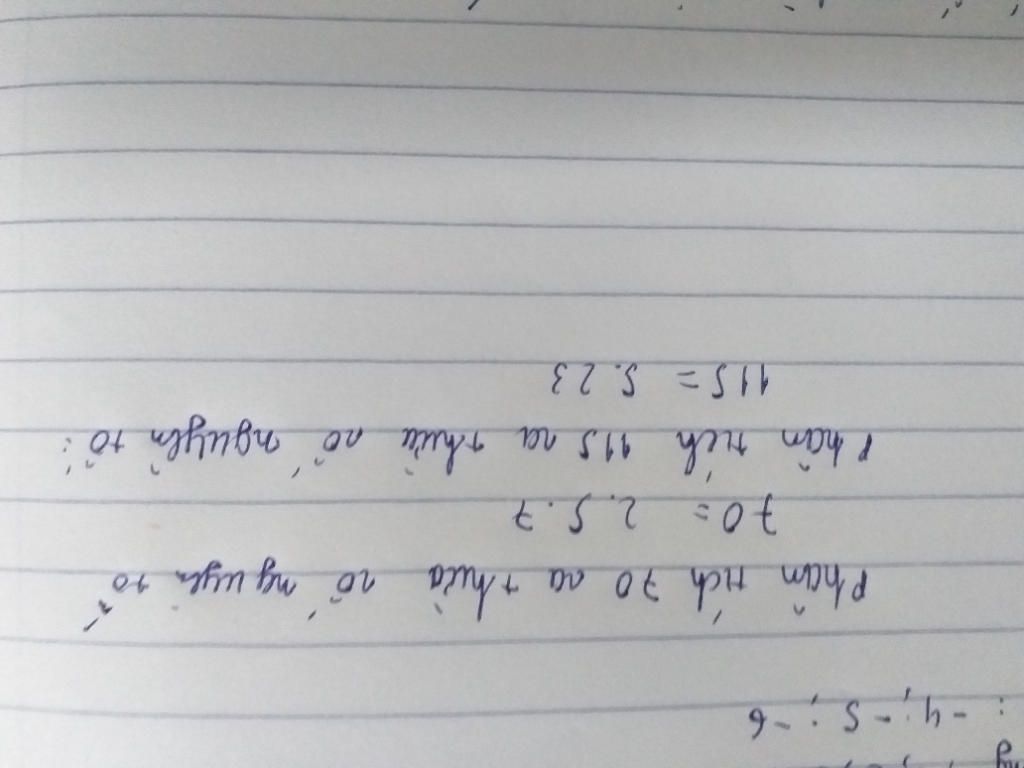 : -4; -5; -6
Phân tích 70 ra thừa số nguyên tố
70 = 2.5.7
Phân tích 115 ra thừa số nguyên tố:
115 = 5.23